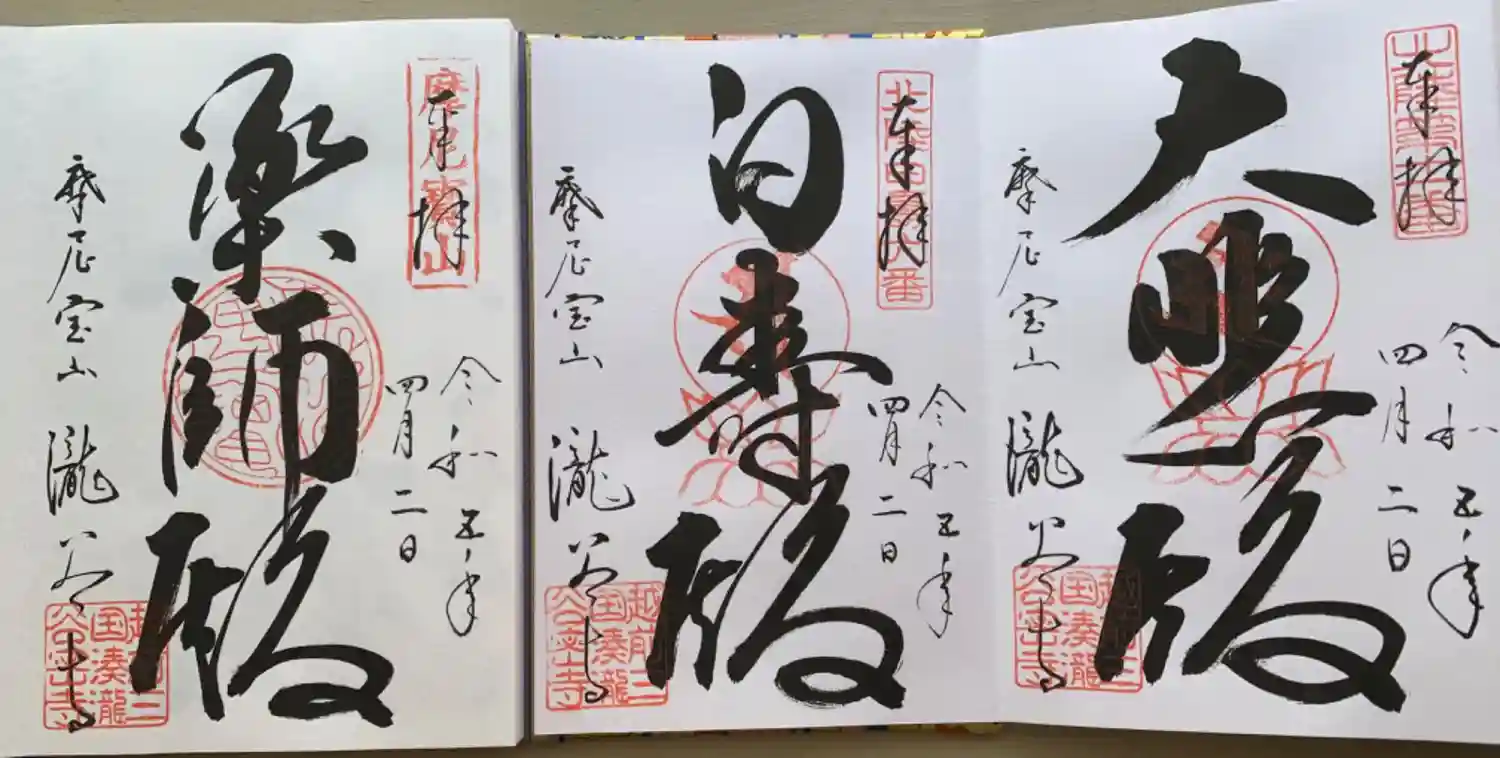 摩尼寶山
奉拝
令和五年
四月二日
薬師殿
摩尼宝山 瀧谷寺
越前三
国湊瀧
谷寺
奉拝
令和五年
四月二日
白寿殿
摩尼宝山 瀧谷寺
越前三
国湊瀧
谷寺
奉拝
令和五年
四月二日
大悲殿
摩尼宝山 瀧谷寺
越前三
国湊瀧
谷寺